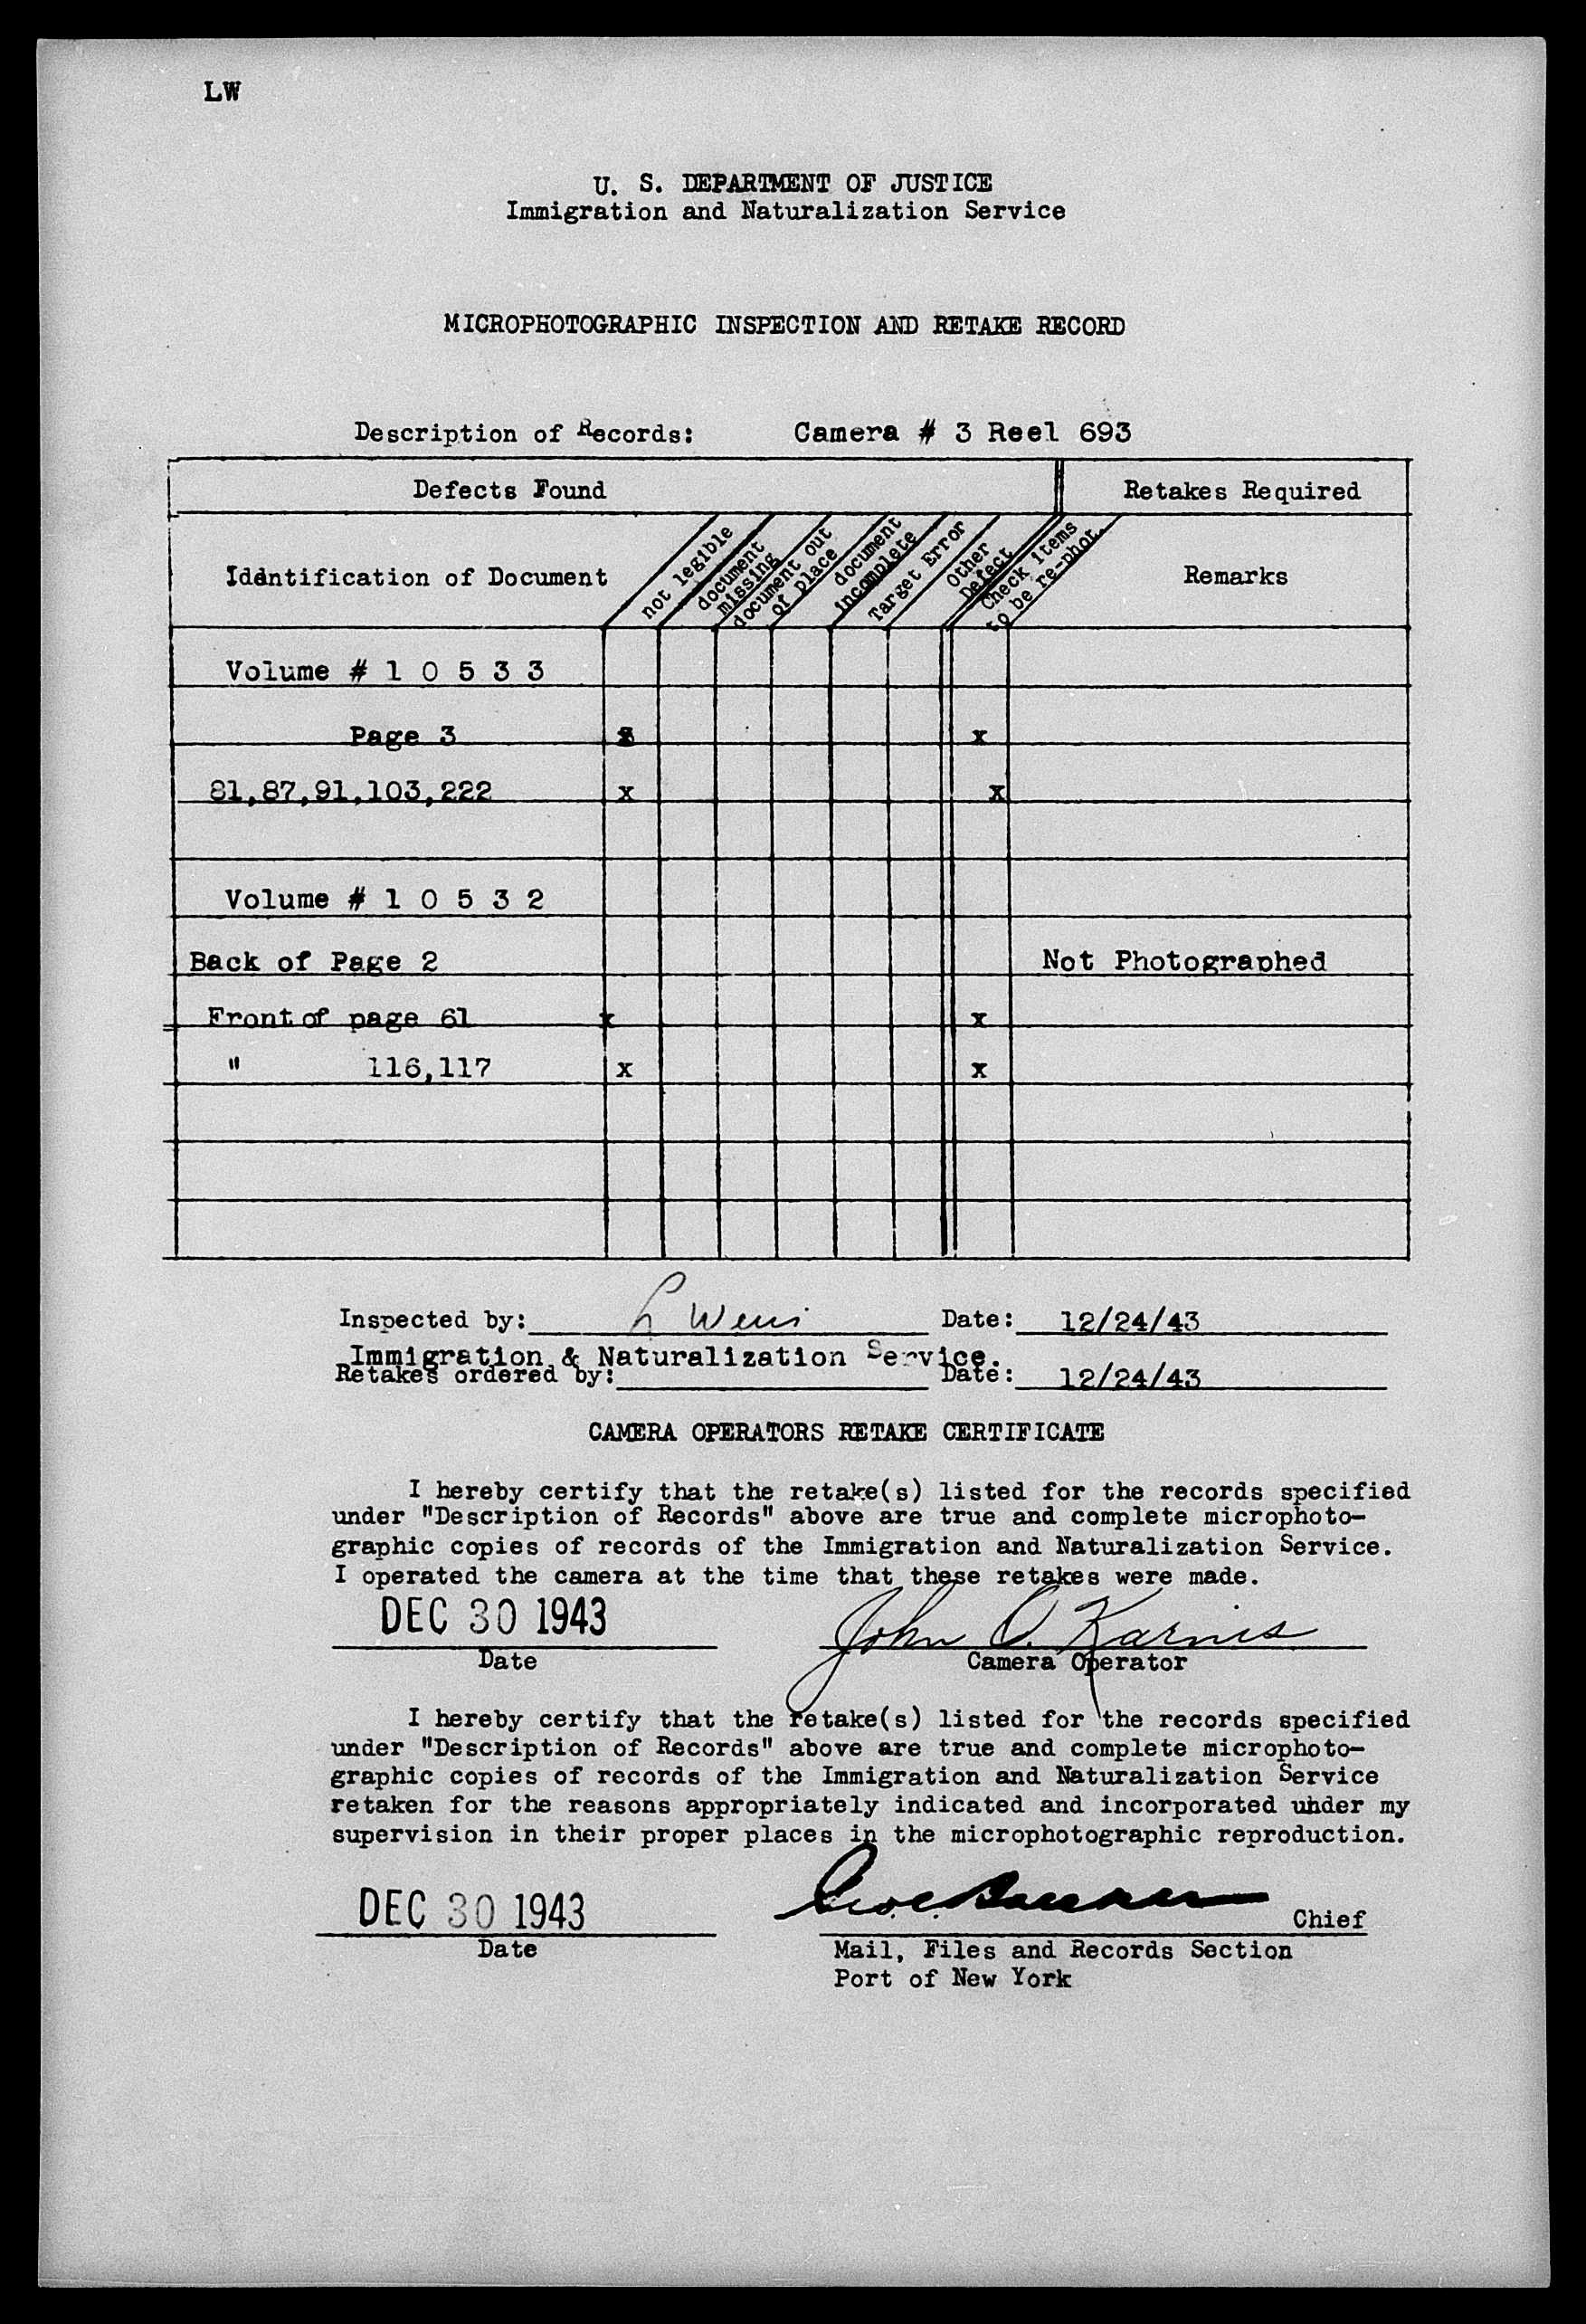 LW
U. S. DEPARTMENT OF JUSTICE
Immigration and Naturalization Service
MICROPHOTOGRAPHIC INSPECTION AND RETAKE RECORD
Description of Records: Camera # 3 Reel 693
Defects Found Retakes Required
Identification of Document not legible document missing document out of place document incomplete Target Error Other Defect Check items to be re-phot. Remarks
Volume # 1 0 5 3 3
Page 3 x
81,87,91,103,222 x x
Volume # 1 0 5 3 2
Back of Page 2 Not Photographed
Front of page 61 x x
" 116,117 x x
Inspected by: L Date: 12/24/43
Immigration & Naturalization Service.
Retakes ordered by: Date: 12/24/43
CAMERA OPERATORS RETAKE CERTIFICATE
I hereby certify that the retake(s) listed for the records specified
under "Description of Records" above are true and complete microphoto-
graphic copies of records of the Immigration and Naturalization Service.
I operated the camera at the time that these retakes were made.
DEC 30 1943 John O. Karnis
Date Camera Operator
I hereby certify that the retake(s) listed for the records specified
under "Description of Records" above are true and complete microphoto-
graphic copies of records of the Immigration and Naturalization Service
retaken for the reasons appropriately indicated and incorporated under my
supervision in their proper places in the microphotographic reproduction.
DEC 30 1943 Chief
Date Mail, Files and Records Section
Port of New York